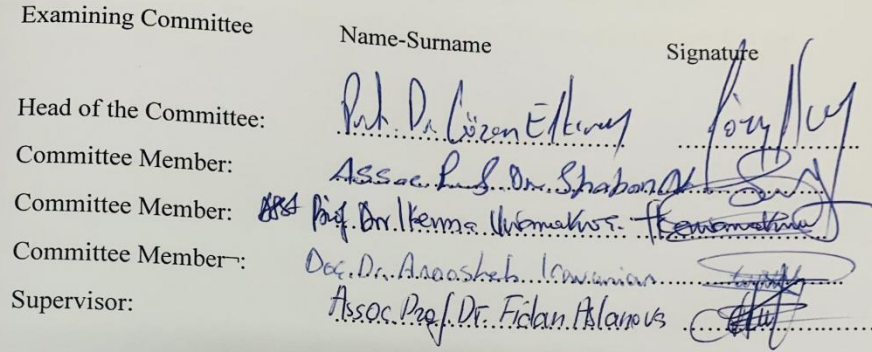 Examining Committee Name-Surname Signature
Head of the Committee: Prof. Dr. Gözen Elkıran
Committee Member: Assoc. Prof. Dr. Shaban
Committee Member: Prof. Dr.
Committee Member: Doc. Dr. Anoosheh Iravanian
Supervisor: Assoc Prof. Dr. Fidan Aslanova